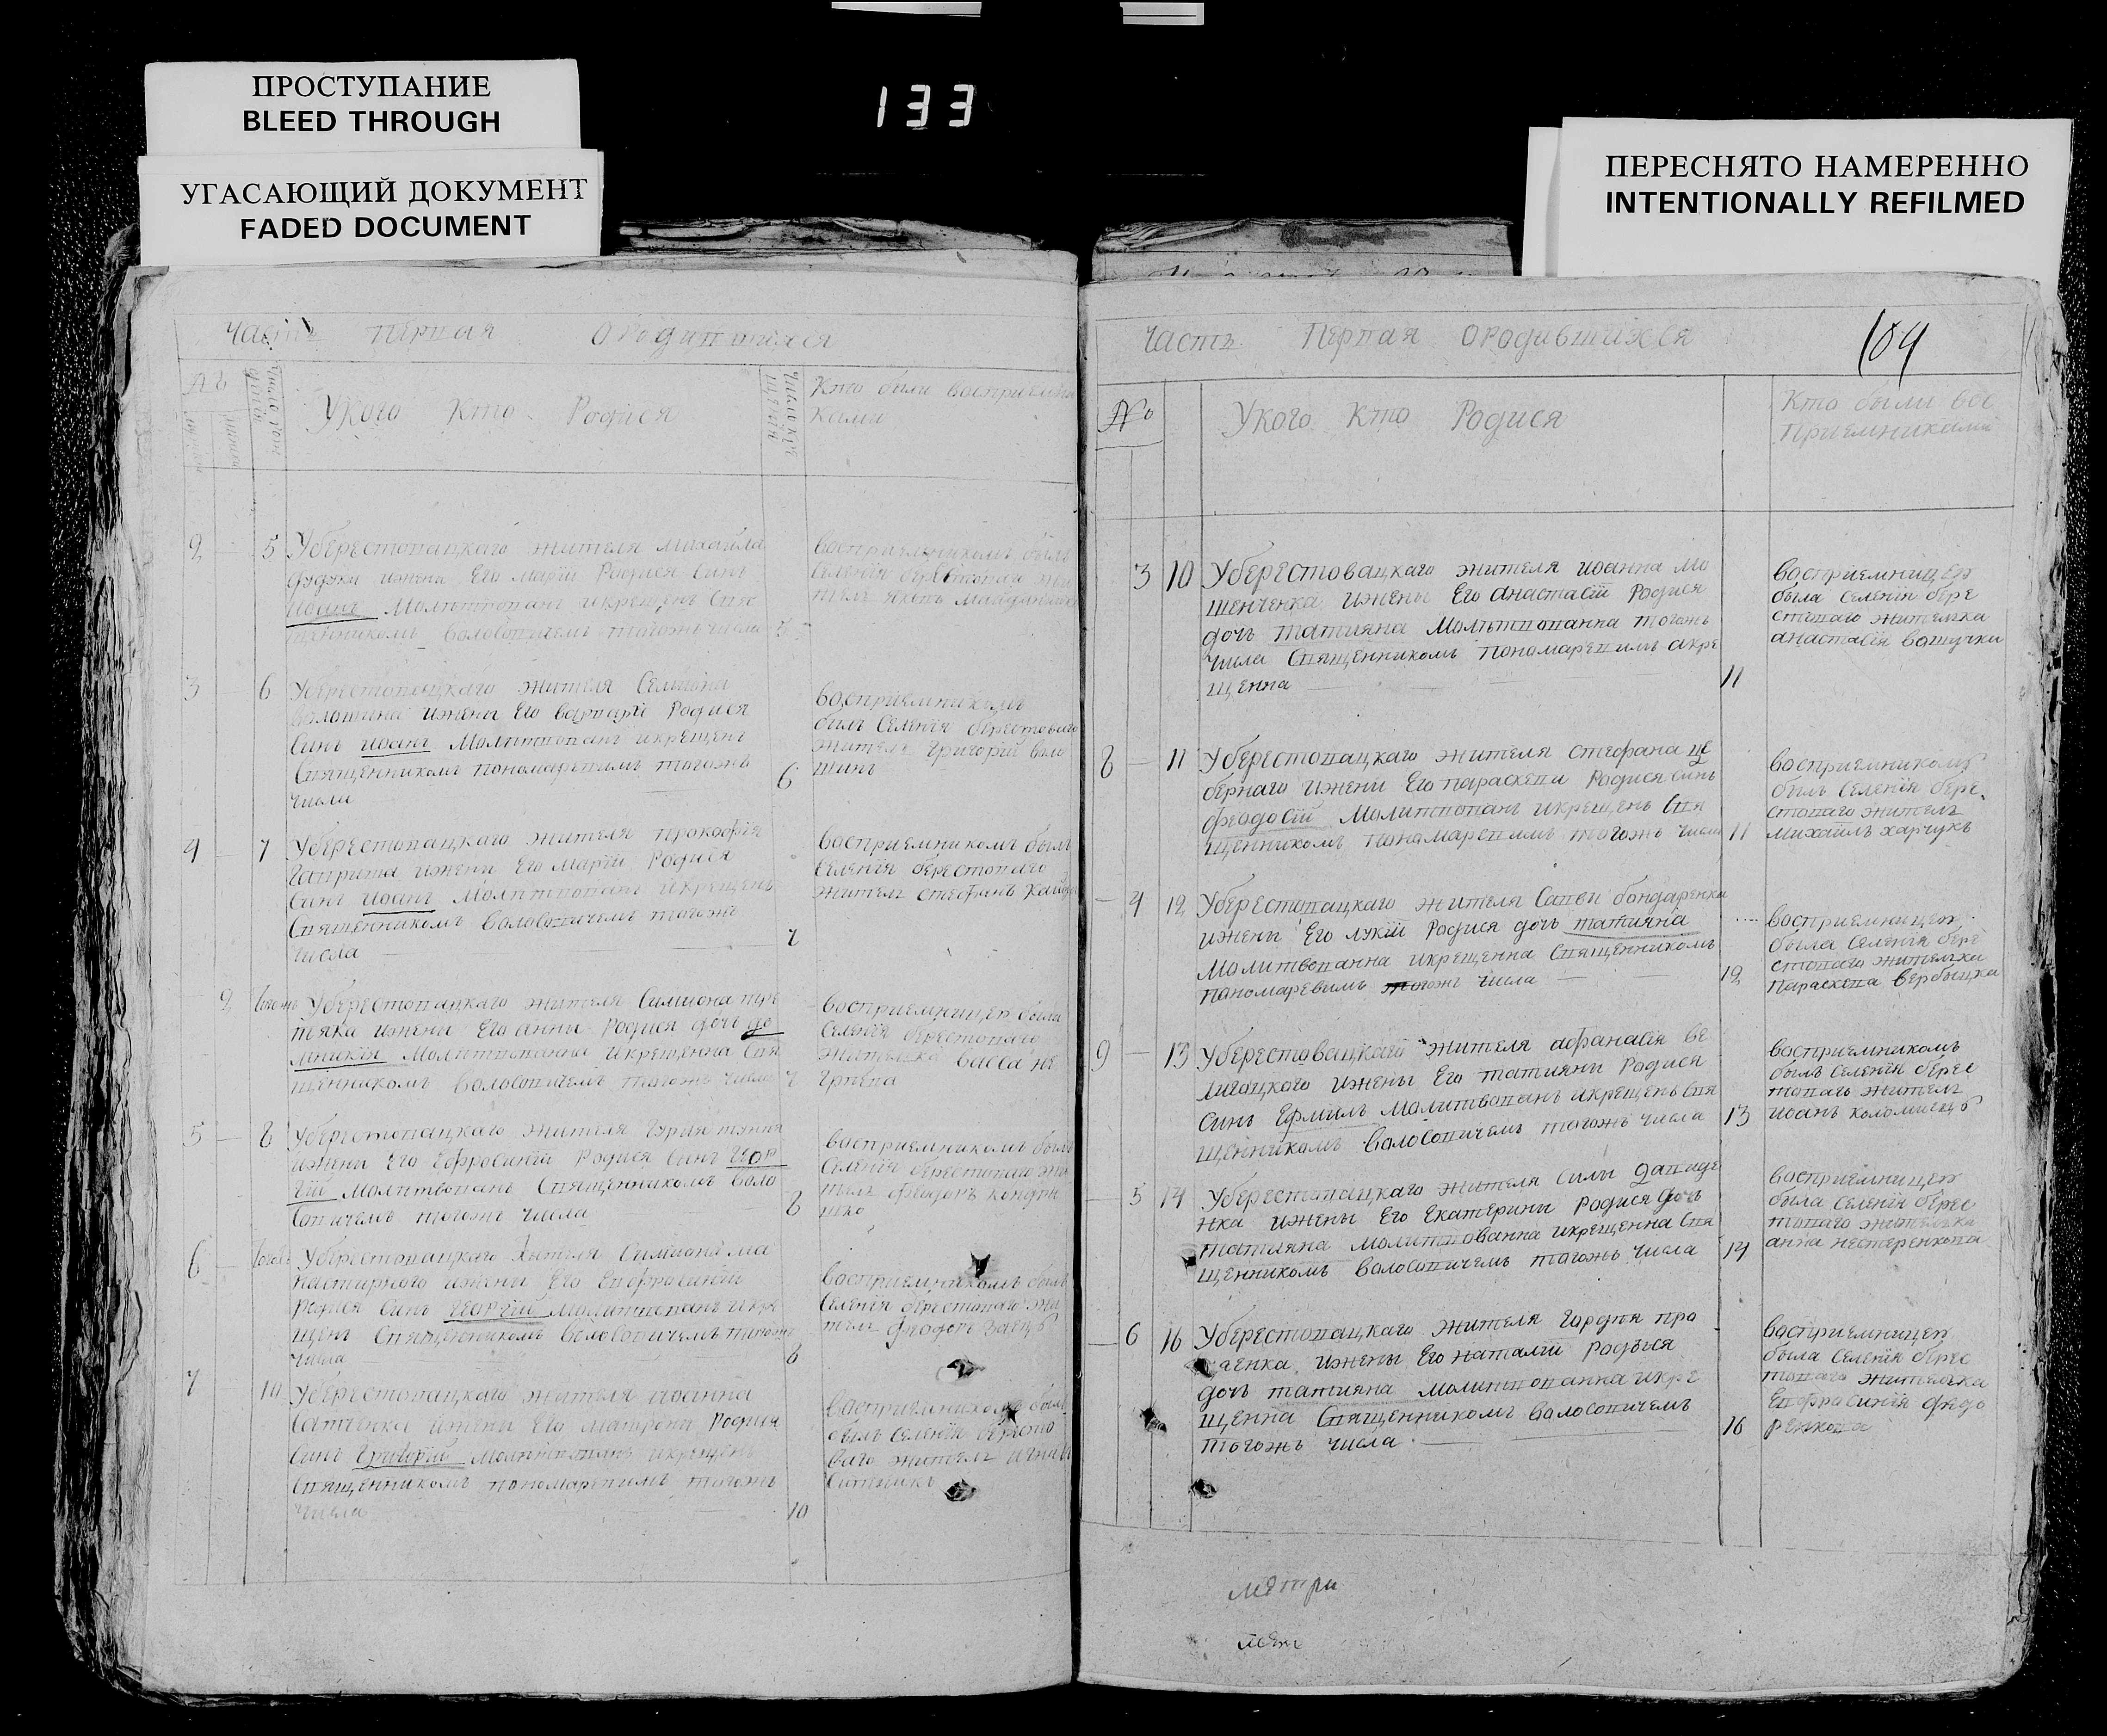 ПРОСТУПАНИЕ
BLEED THROUGH
УГАСАЮЩИЙ ДОКУМЕНТ
FADED DOCUMENT
133
ПЕРЕСНЯТО НАМЕРЕННО
INTENTIONALLY REFILMED
часть первая о родившихся
Укого Кто Родися
Кто были восприемни
ками
2 5 Уберестовацкаго жителя михайла
ижени Его марїи Родися Синъ
иоанъ Молитвованъ икрещенъ Свя
щенникомъ волосовичемъ тогожъ числа 5
восприемникомъ былъ
Селенїя берестоваго жи
тель
3 6 Уберестовацкаго жителя Семиона
волошина ижени Его варвари Родися
Синъ иоанъ Молитвованъ икрещенъ
Священникомъ пономаревимъ тогожъ
числа 6
восприемникомъ
билъ Селенїя берестоваго
жителъ григорий воло
шинъ
4 7 Уберестовацкаго жителя прокофїя
гаприша ижени Его марїи Родися
Синъ иоанъ Молитвованъ икрещенъ
Священникомъ волосовичемъ тогожъ
числа 7
восприемникомъ былъ
Селенїя берестоваго
жителъ стефанъ
2 Тогожъ Уберестовацкаго жителя Симиона пуе
тяка ижени Его анни Родися дочъ до
мникїя Молитвованна икрещенна Свя
щенникомъ волосовичемъ тогожъ числа 7
восприемницею была
Селенїя берестоваго
жителка васса не
5 8 Уберестовацкаго жителя гурия
ижени Его Ефросинїи Родися Синъ геор
гїй Молитвованъ Священникомъ воло
совичемъ тогожъ числа 8
восприемникомъ былъ
Селенїя берестоваго жи
тель
6 Тогожъ Уберестовацкого жителя Симиона ма
настирного ижени Его Евфросинїи
Родися Синъ георгїй молитвованъ икре
щенъ Священникомъ волосовичемъ тогожъ
числа 8
восприемникомъ былъ
Селенїя берестоваго жи
тель феодоръ заецъ
7 10 Уберестовацкаго жителя иоанна
ижени Его матрони Родися
Синъ григорїй молитвованъ икрещенъ
Священникомъ пономаревимъ тогожъ
числа 10
восприемникомъ былъ
былъ Селенїя бересто
ваго жителъ
Ситникъ
Часть Первая ородившихся
104
№
Укого Кто Родися
Кто были вос
приемниками
3 10 Уберестовацкаго жителя иоанна мо
шенченка ижены Его анастасїи Родися
дочъ татияна Молитвованна тогожъ
числа Священникомъ пономаревимъ икре
щенна 11
восприемницею
была Селенїя бере
стоваго жителка
анастасїя вошучки
8 11 Уберестовацкаго жителя стефана це
бернаго ижени Его параскеви Родися Синъ
феодосїй Молитвованъ икрещенъ Свя
щенникомъ панамаревимъ тогожъ числа 11
восприемникомъ
былъ Селенїя бере
стоваго жителъ
михайлъ харчукъ
4 12 Уберестовацкаго жителя Савви бондаренка
ижени Его лукїи Родися дочъ татияна
Молитвованна икрещенна Священникомъ
паномаревимъ тогожъ числа 12
восприемницею
была Селенїя бере
стоваго жителка
параскева вербицка
9 13 Уберестовацкаго жителя афанасїя ве
лигоцкого ижены Его татияни Родися
Синъ Ефмилъ Молитвованъ икрещенъ Свя
щенникомъ волосовичемъ тогожъ числа 13
восприемникомъ
былъ Селенїя берес
товаго жителъ
иоанъ коломиецъ
5 14 Уберестовацкаго жителя Сили давиде
нка ижены Его Екатерины Родися дочъ
татияна молитвованна икрещенна Свя
щенникомъ волосовичемъ тогожъ числа 14
восприемницею
была Селенїя берес
товаго жителка
анна нестеренкова
6 16 Уберестовацкаго жителя гордея про
аенка ижены Его наталїи Родися
дочъ татияна молитвованна икре
щенна Священникомъ волосовичемъ
тогожъ числа 16
восприемницею
была Селенїя берес
товаго жителка
Евфросинїя федо
ренкова
метри